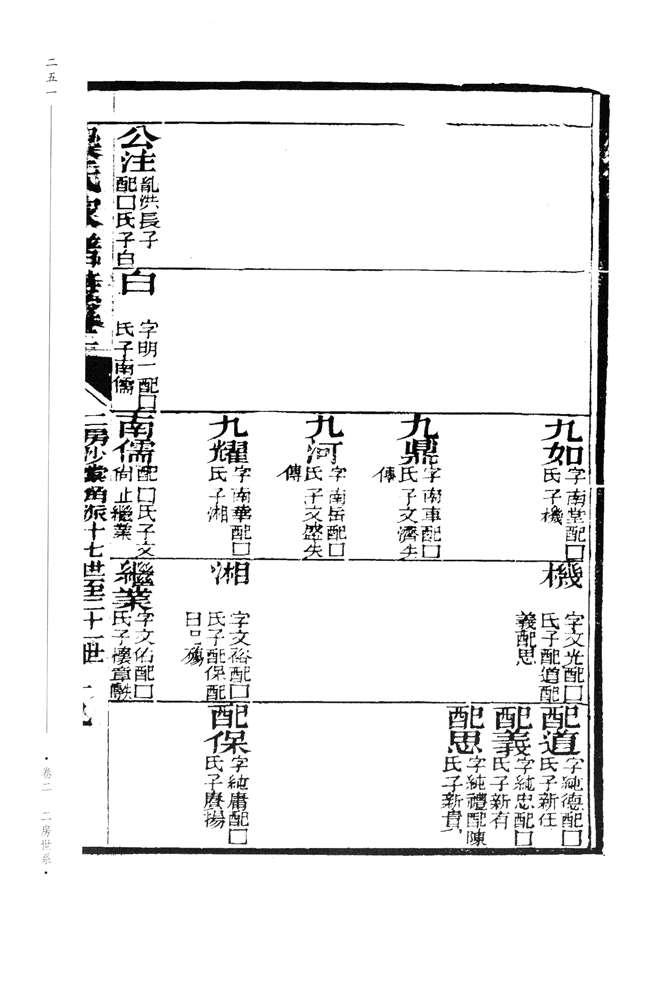 九如
字南堂配口
氏子機
九鼎
字南車配口
氏子文濟失
傳
九河
字南岳配口
氏子文盛失
傳
九耀
字南華配口
氏子湘
公注
亂洪長子
配口氏子白
白
字明一配口
氏子南儒
南儒
配口氏子文
尚止繼業
機
字文光配口
氏子配道配
義配思
湘
字文裕配口
氏子配保配
繼業
字文佑配口
氏子懷章
配道
字純德配口
氏子新任
配義
字純忠配口
氏子新有
配思
字純禮配陳
氏子新貴
配保
字純庸配口
氏子賡揚
二房沙裳角派十七世至二十一世
二五一
卷二 二房世系